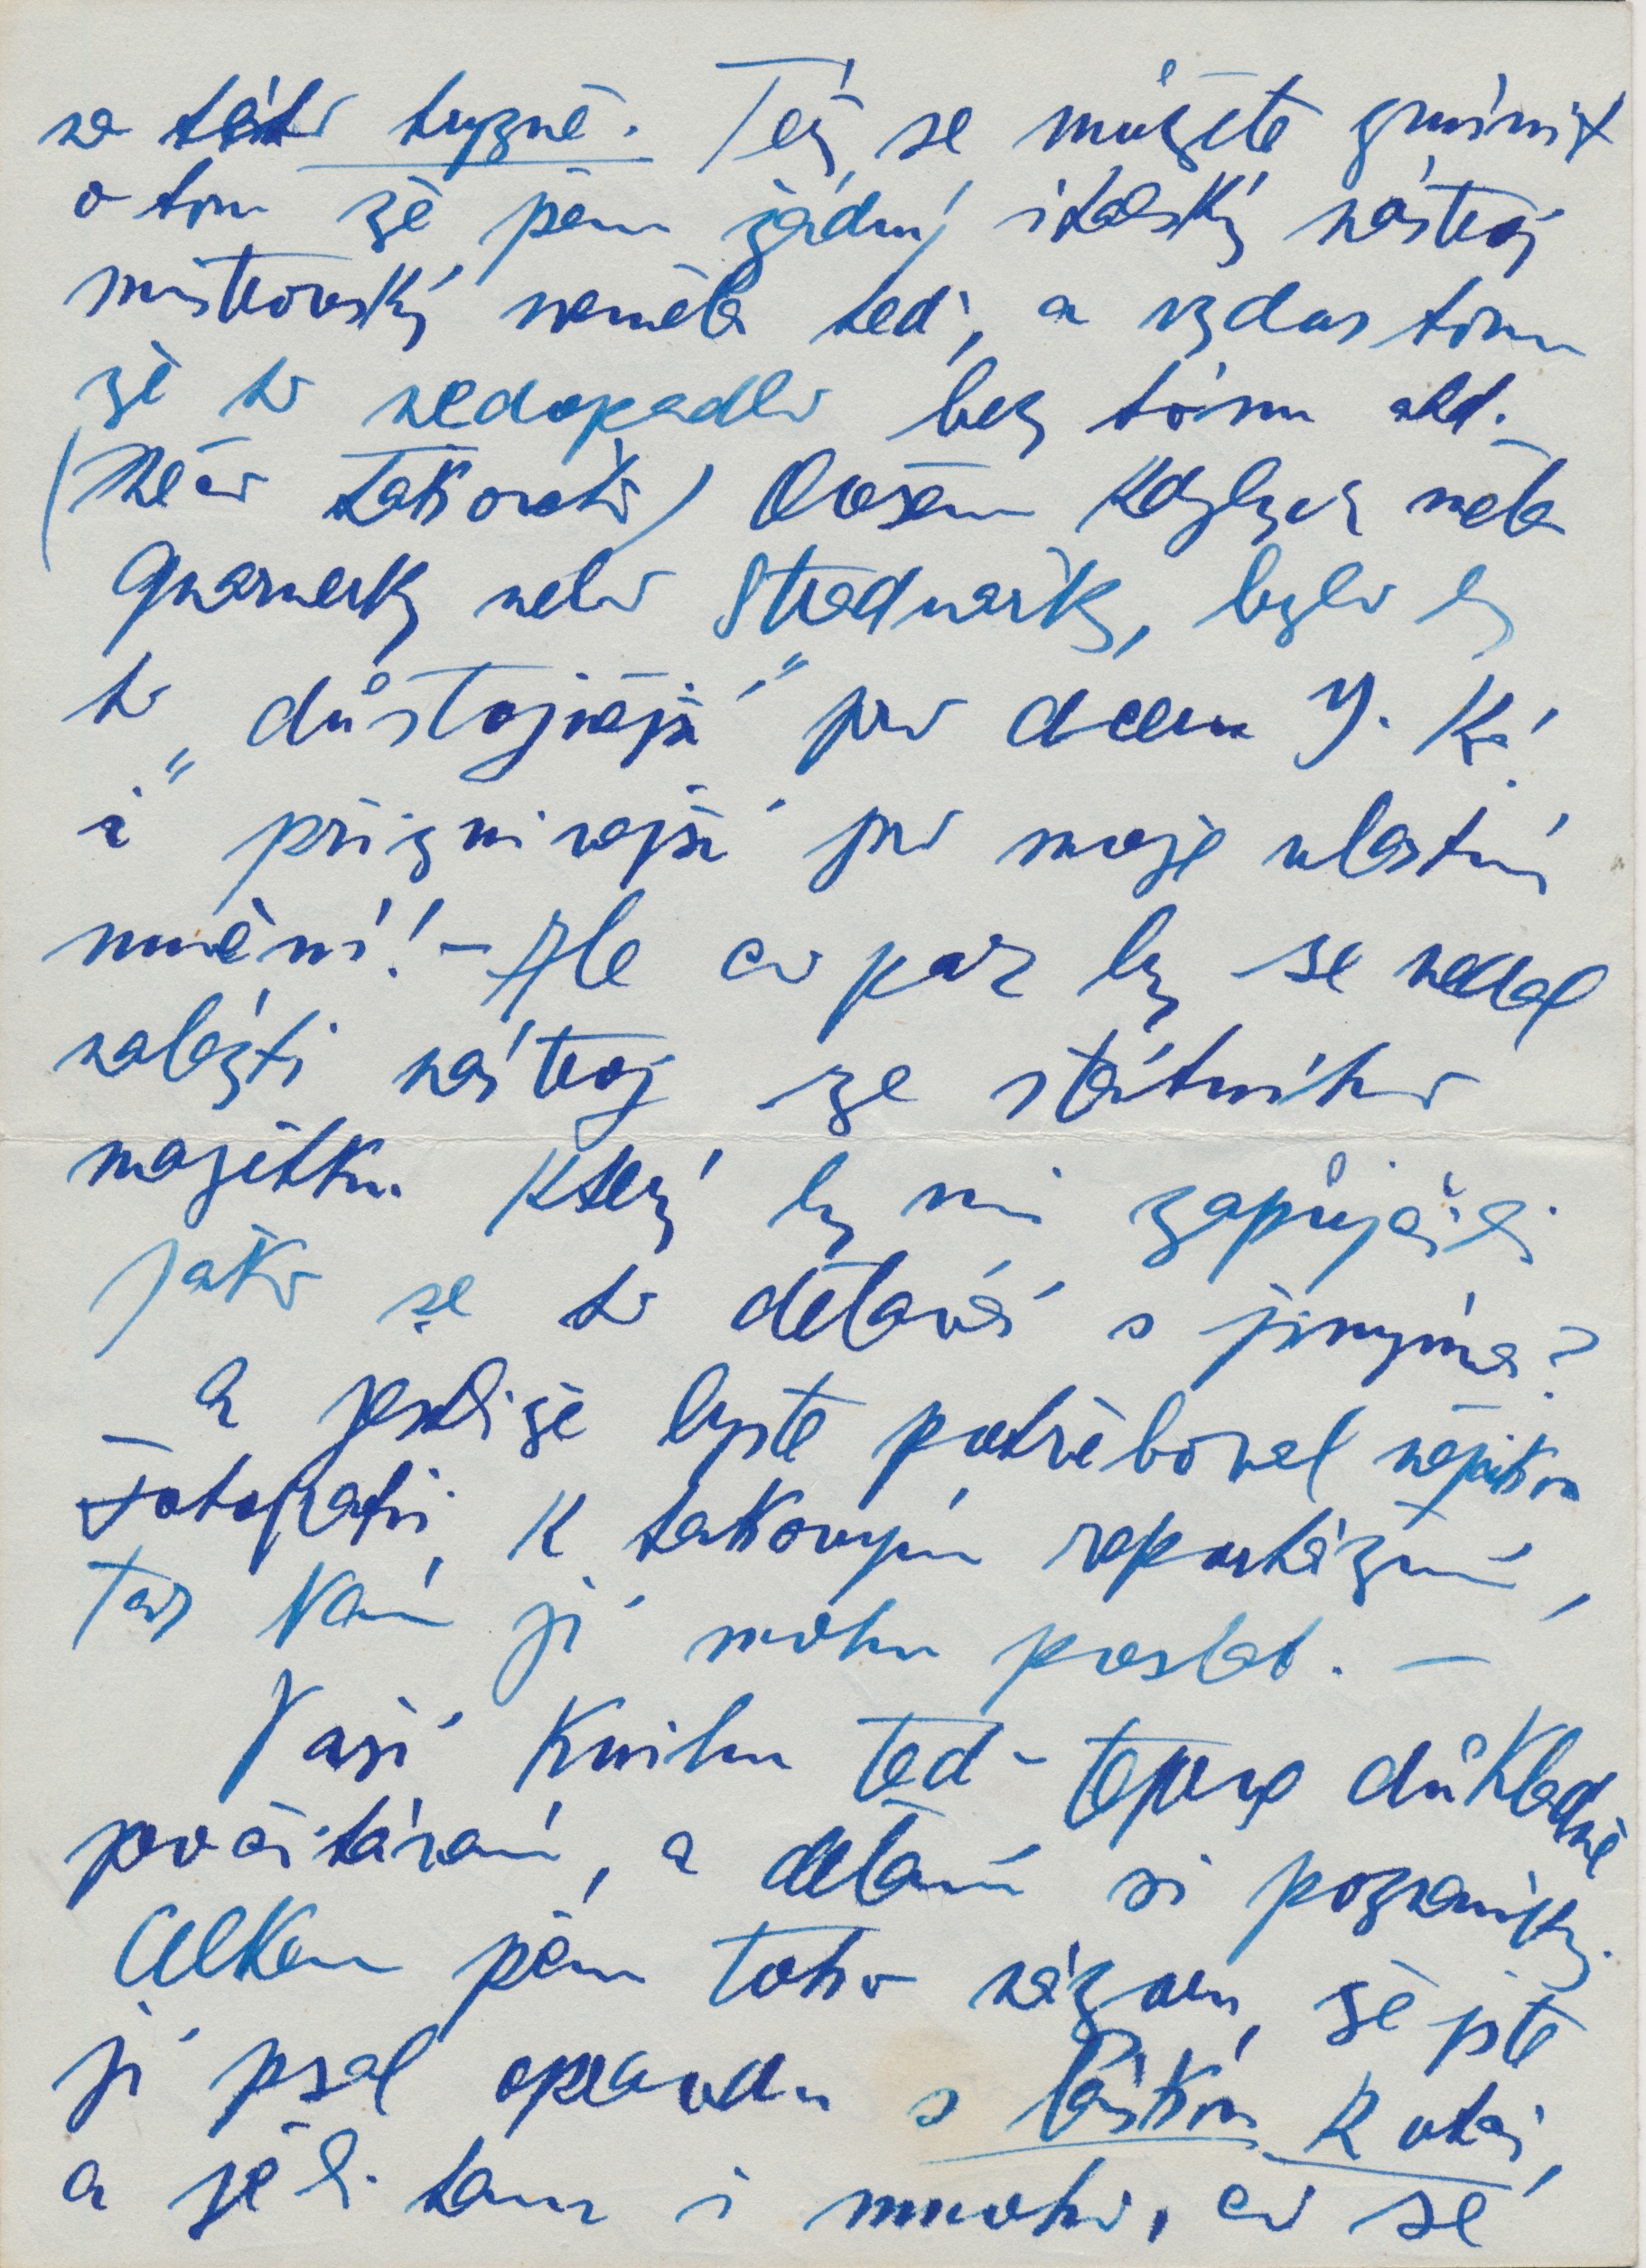 na této tryzně. Též se můžete zmínit
o tom že jsem žádný italský nástroj
mistrovský neměla teď, a vzdor tomu
že to nedopadlo bez tónu atd.
(něco takového) Ovšem kdybych měla
Guarnerky nebo Stradivarky, bylo by
to „důstojnější" pro dceru J. Ko.!
i příznivější pro moje vlastní
umění! – Ale co pak by se nedal
nalézti nástroj ze státního
majetku který by mi zapůjčili
jako se to dělává s jinýma?
a jestliže byste potřeboval nějakou
fotografii, k takovým reportážím,
tak Vám ji mohu poslat. –
Vaši knihu teď – teprve důkladně
pročítávám, a dělám si poznámky.
Celkem jsem toho názoru, že jste
ji psal opravdu s láskou k otci,
a je-li tam i mnoho, co se